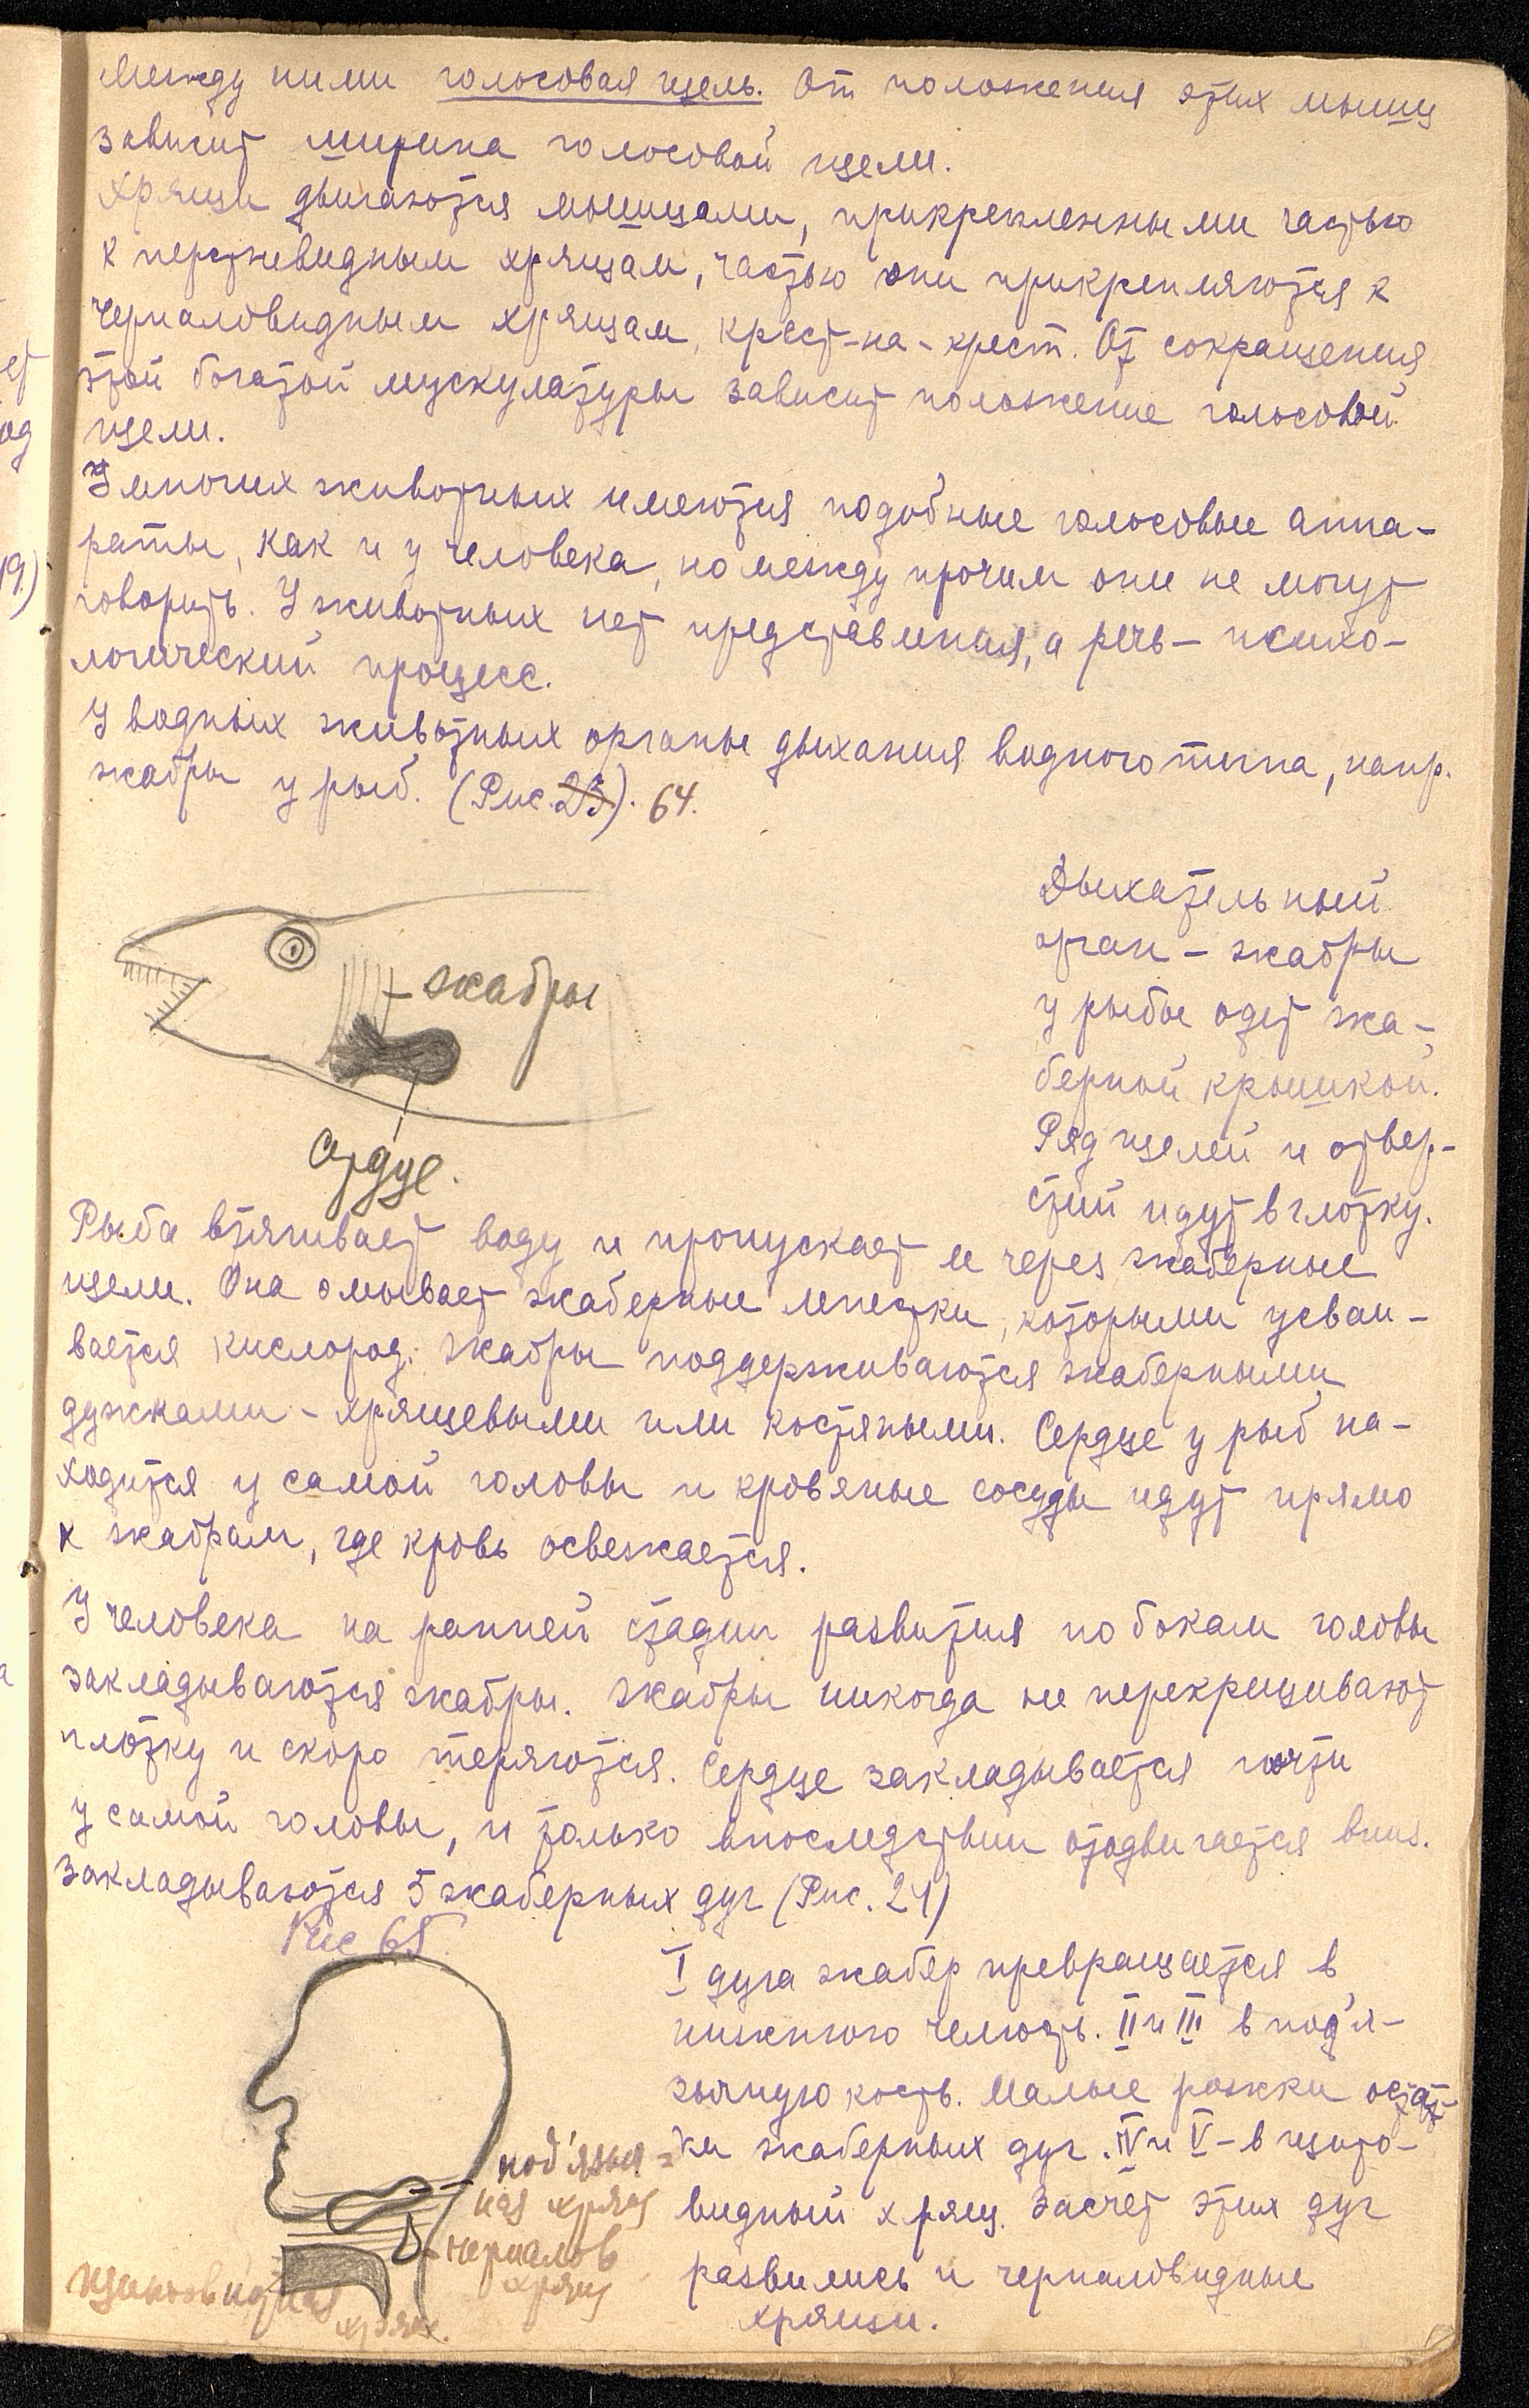 Между ними голосовая щель. От положения этих мышц
зависит ширина голосовой щели.
Хрящи двигаются мышцами, прикрепленными частью
к перстневидным хрящам, частью они прикрепляются к
черпаловидным хрящам, крест-на-крест. От сокращения
этой богатой мускулатуры зависит положение голосовой
щели.
У многих животных имеются подобные голосовые аппа-
раты, как и у человека, но между прочим они не могут
говорить. У животных нет представления, а речь – психо-
логический процесс.
У водных животных органы дыхания водного типа, напр.
жабры у рыб. (Рис. 23). 64.
Дыхательный
орган – жабры
у рыбы одет жа-
берной крышкой.
Ряд щелей и отвер-
стий идут в глотку.
жабры
сердце.
Рыба втягивает воду и пропускает ее через жаберные
щели. Она омывает жаберные лепестки, которыми усваи-
вается кислород. Жабры поддерживаются жаберными
дужками – хрящевыми или костяными. Сердце у рыб на-
ходится у самой головы и кровяные сосуды идут прямо
к жабрам, где кровь освежается.
У человека на ранней стадии развития по бокам головы
закладываются жабры. Жабры никогда не перекрещивают
глотку и скоро теряются. Сердце закладывается почти
у самой головы, и только впоследствии отодвигается вниз.
Закладываются 5 жаберных дуг (Рис. 24)
Рис 65
I дуга жабер превращается в
нижнюю челюсть. II и III в под'я-
зычную кость. Малые рожки остат-
ки жаберных дуг. IV и V – в щито-
видный хрящ. Засчет этих дуг
развились и черпаловидные
хрящи.
под'языч=
ная хрящ
черпалов
хрящ
щитовидная
хрящ.
19)